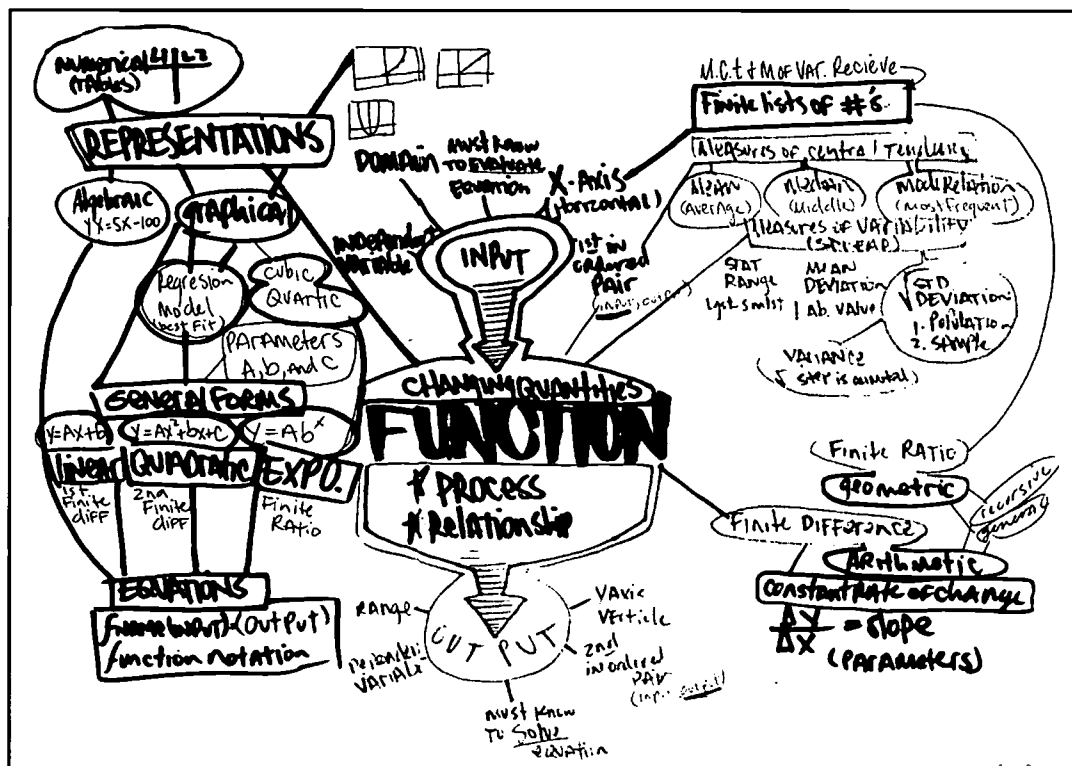 NUMERICAL L1 L2
(TABLES)
REPRESENTATIONS
Algebraic
YX=5X-100
Graphical
Regresion
Model
(best Fit)
cubic
QUARTIC
PARAMETERS
A, b, and C
GENERAL FORMS
Y=AX+b
Y=AX²+bx+c
Y=Ab^x
linear
QUADRATIC
EXPO.
1st
Finite
diff
2nd
Finite
diff
Finite
RAtio
EQUATIONS
fname(INPUT)=(OUTPUT)
function notation
DOMAIN
must know
TO EVALUATE
Equation
X-Axis
(Horizontal)
INDEPENDENT
VARIABLE
INPUT
1st in
ordered
PAIR
(input, output)
CHANGING QUANTITIES
FUNCTION
* PROCESS
* Relationship
OUTPUT
RANGE
Dependent
VARIABLE
must know
TO Solve
equation
YAxis
VERTICLE
2nd
in ordered
PAIR
(input, output)
M.C.t & M of VAR. Recieve
Finite lists of #'s
Measures of central Tendency
MEAN
(Average)
Median
(Middle)
Mode
(Most Frequent)
Measures of VARIABILITY
STAT
RANGE
MEAN
DEVIATION
| Ab. VALUE
√ STD
DEVIATION
1. POPULATION
2. SAMPLE
VARIANCE
Finite RATIO
geometric
recursive
general
Finite Difference
ARithmetic
constant Rate of change
ΔY/ΔX = slope
(PARAMETERS)